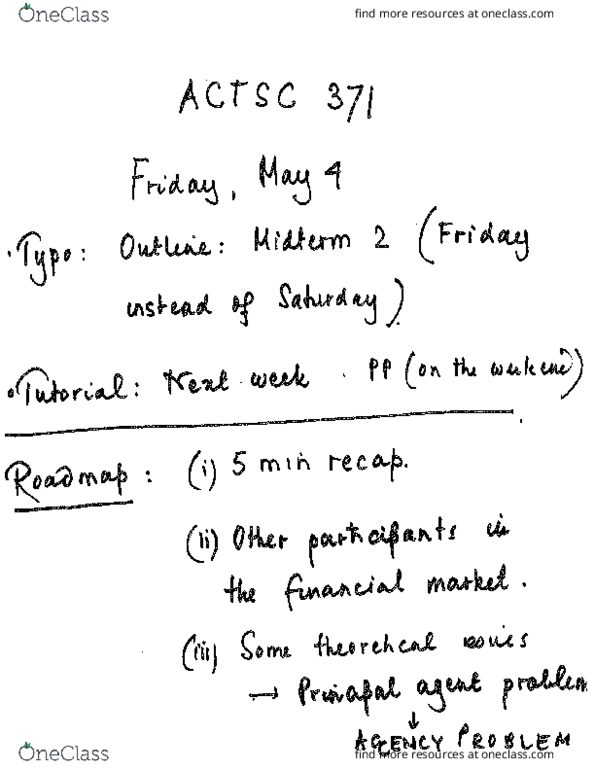 OneClass find more resources at oneclass.com
ACTSC 371
Friday, May 4
· Typo: Outline: Midterm 2 (Friday
instead of Saturday).
• Tutorial: Next week . PP (on the weekend)
Roadmap: (i) 5 min recap.
(ii) Other participants in
the financial market.
(iii) Some theoretical issues
→ Principal agent problem
↓
AGENCY PROBLEM
OneClass find more resources at oneclass.com